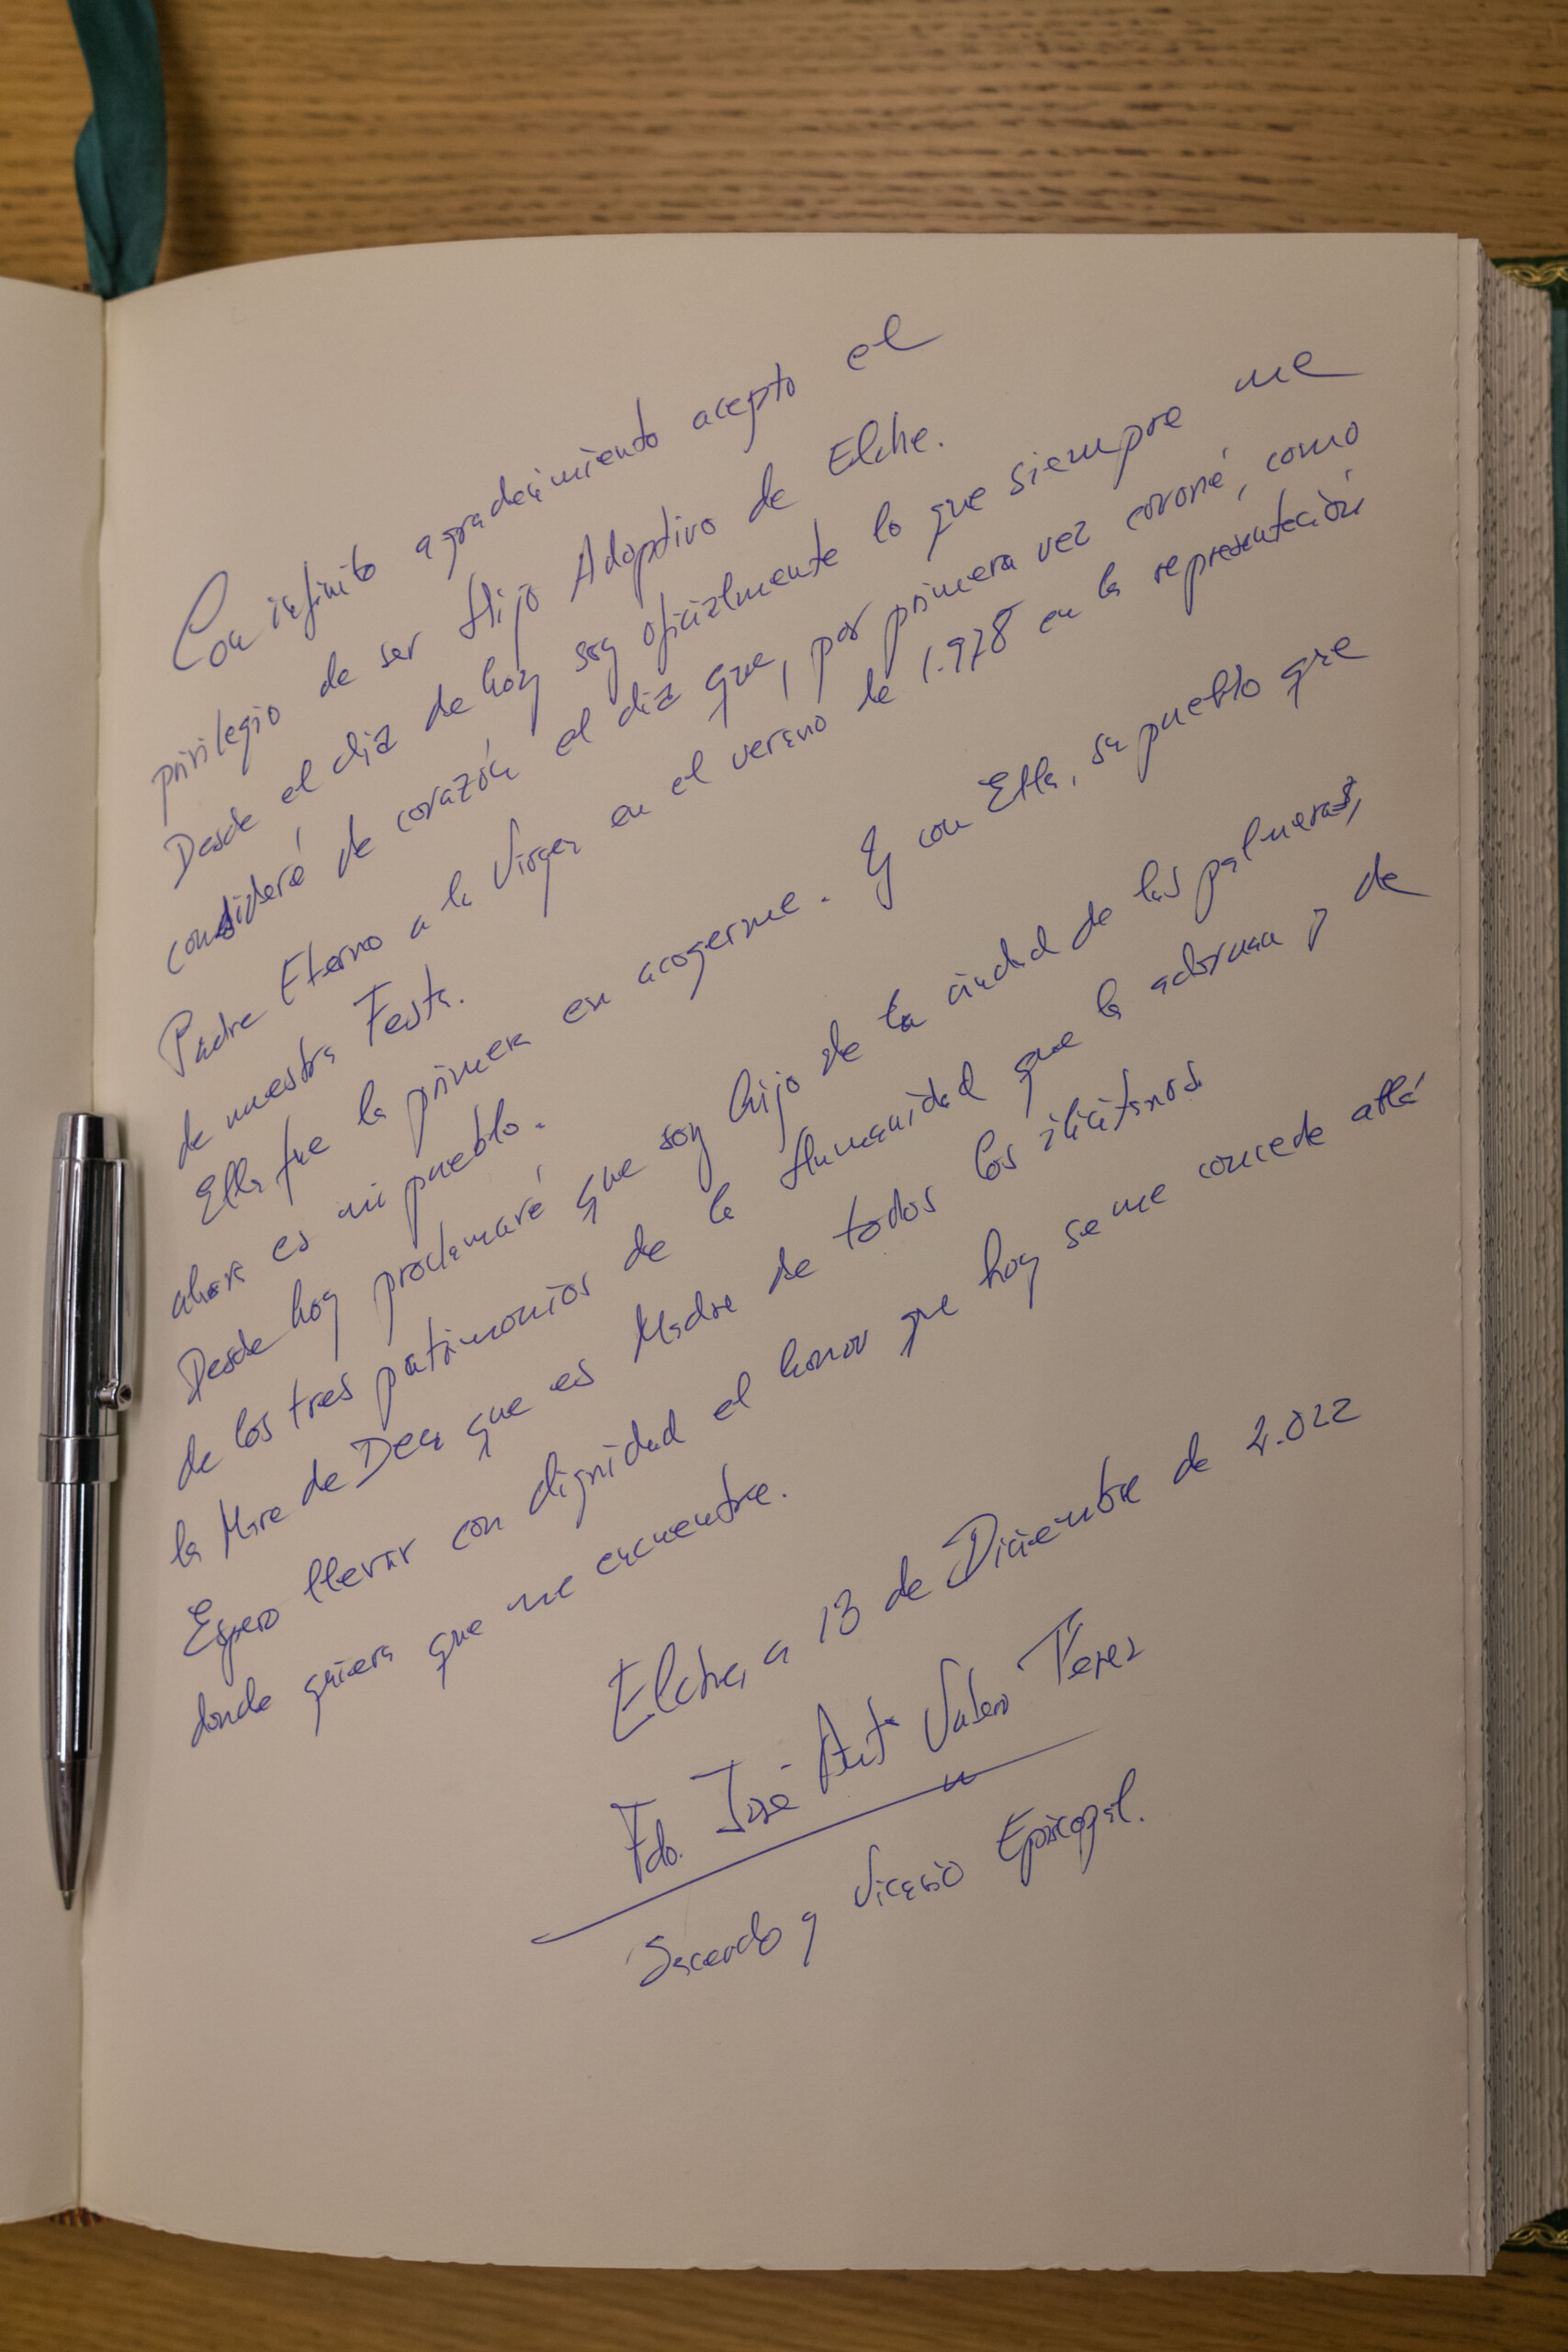 Con infinito agradecimiento acepto el
privilegio de ser Hijo Adoptivo de Elche.
Desde el día de hoy soy oficialmente lo que siempre me
consideré de corazón el día que, por primera vez coroné, como
Padre Eterno a la Virgen en el verano de 1.978 en la representación
de nuestra Festa.
Ella fue la primera en acogerme. Y con Ella, su pueblo que
ahora es mi pueblo.
Desde hoy proclamaré que soy hijo de la ciudad de las palmeras,
de los tres patrimonios de la Humanidad que la adornan y de
la Mare de Deu que es Madre de todos los ilicitanos
Espero llevar con dignidad el honor que hoy se me concede allá
donde quiera que me encuentre.
Elche, a 13 de Diciembre de 2.022
Fdo. José Antº Valero Pérez
Sacerdo y Vicario Episcopal.